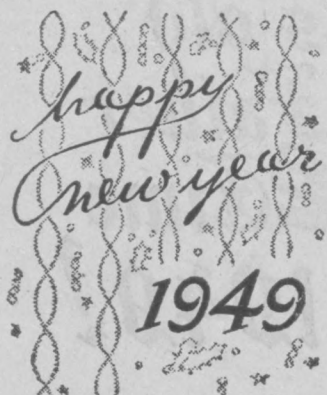 happy
new year
1949